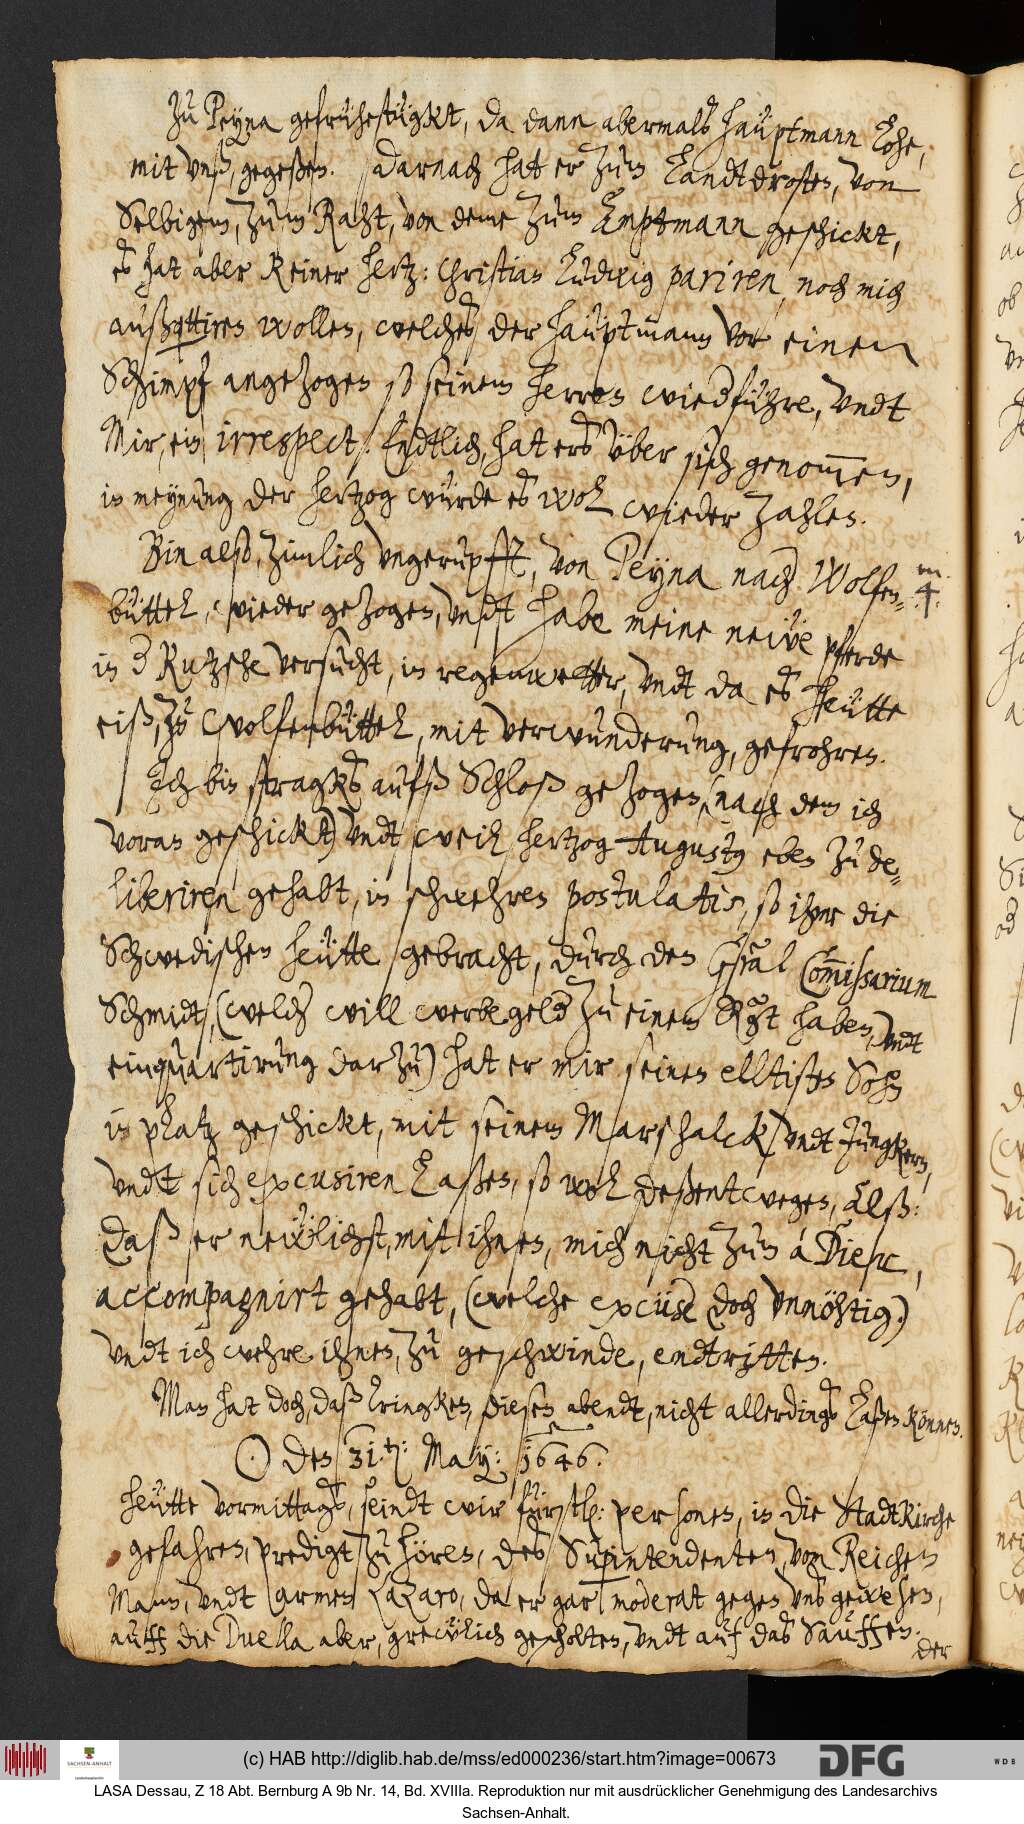 Zu Peyna gefruhestügkt, da dann abermalß Hauptmann Lohe,
mit unß, gegeßen. Darnach hat er zum Landtdrosten, von
Selbigem, zum Raht, von deme zum Amptmann geschickt,
eß hat aber keiner Hertz: Christian Ludwig pariren, noch mich
außquittiren wollen, welcheß der Hauptmann vor einen
Schimpf angezogen so seinem Herren wiederführe, undt
Mir, ein irrespect. Endtlich, hat erß über sich genommen,
in meynung der Hertzog würde eß wol wieder zahlen.
Bin also, zimlich ungerupfft, von Peyna nach Wolfen-
m.
4.
büttel, wieder gezogen, undt habe meine neüe pferde
in der Kutzsche versucht, in regenwetter, undt da eß heütte
eiß, zu Wolfenbüttel, mit verwunderung, gefrohren.
Ich bin stragkß aufß Schloß gezogen, (nach dem ich
voran geschickt) undt weil Hertzog Augustus eben zu de-
liberiren gehabt, in schwehren postulatis, so ihme die
Schwedischen heütte gebracht, durch den General Commissarium
Schmidt, (welcher will werbegelder zu einem Regiment haben, undt
einquartirung darzu) hat er mir seinen elltisten Sohn
in platz geschickt, mit seinem Marschalck, undt Jungkern,
undt sich excusiren laßen, so wol deßentwegen, alß:
daß er neẅlichst, mit ihnen, mich nicht zum à Dieu,
accompagnirt gehabt, (welche excüse doch unnöhtig)
undt ich wehre ihnen, zu geschwinde, endtritten.
Man hat doch, daß trincken, diesen abendt, nicht allerdings laßen können.
☉ den 31.ten: May: 1646.
Heütte vormittagß, seindt wir fürstl: personen, in die Stadtkirche
gefahren, predigt zu hören, deß Supintendenten, von Reichen
Mann, undt armen Lazaro, da er gar moderat gegen unß gewesen,
aufff die Duella aber, grewlich gescholten, undt auf daß Sauffen.
der
(c) HAB http://diglib.hab.de/mss/ed000236/start.htm?image=00673
SACHSEN-ANHALT
DFG
WDB
LASA Dessau, Z 18 Abt. Bernburg A 9b Nr. 14, Bd. XVIIIa. Reproduktion nur mit ausdrücklicher Genehmigung des Landesarchivs
Sachsen-Anhalt.